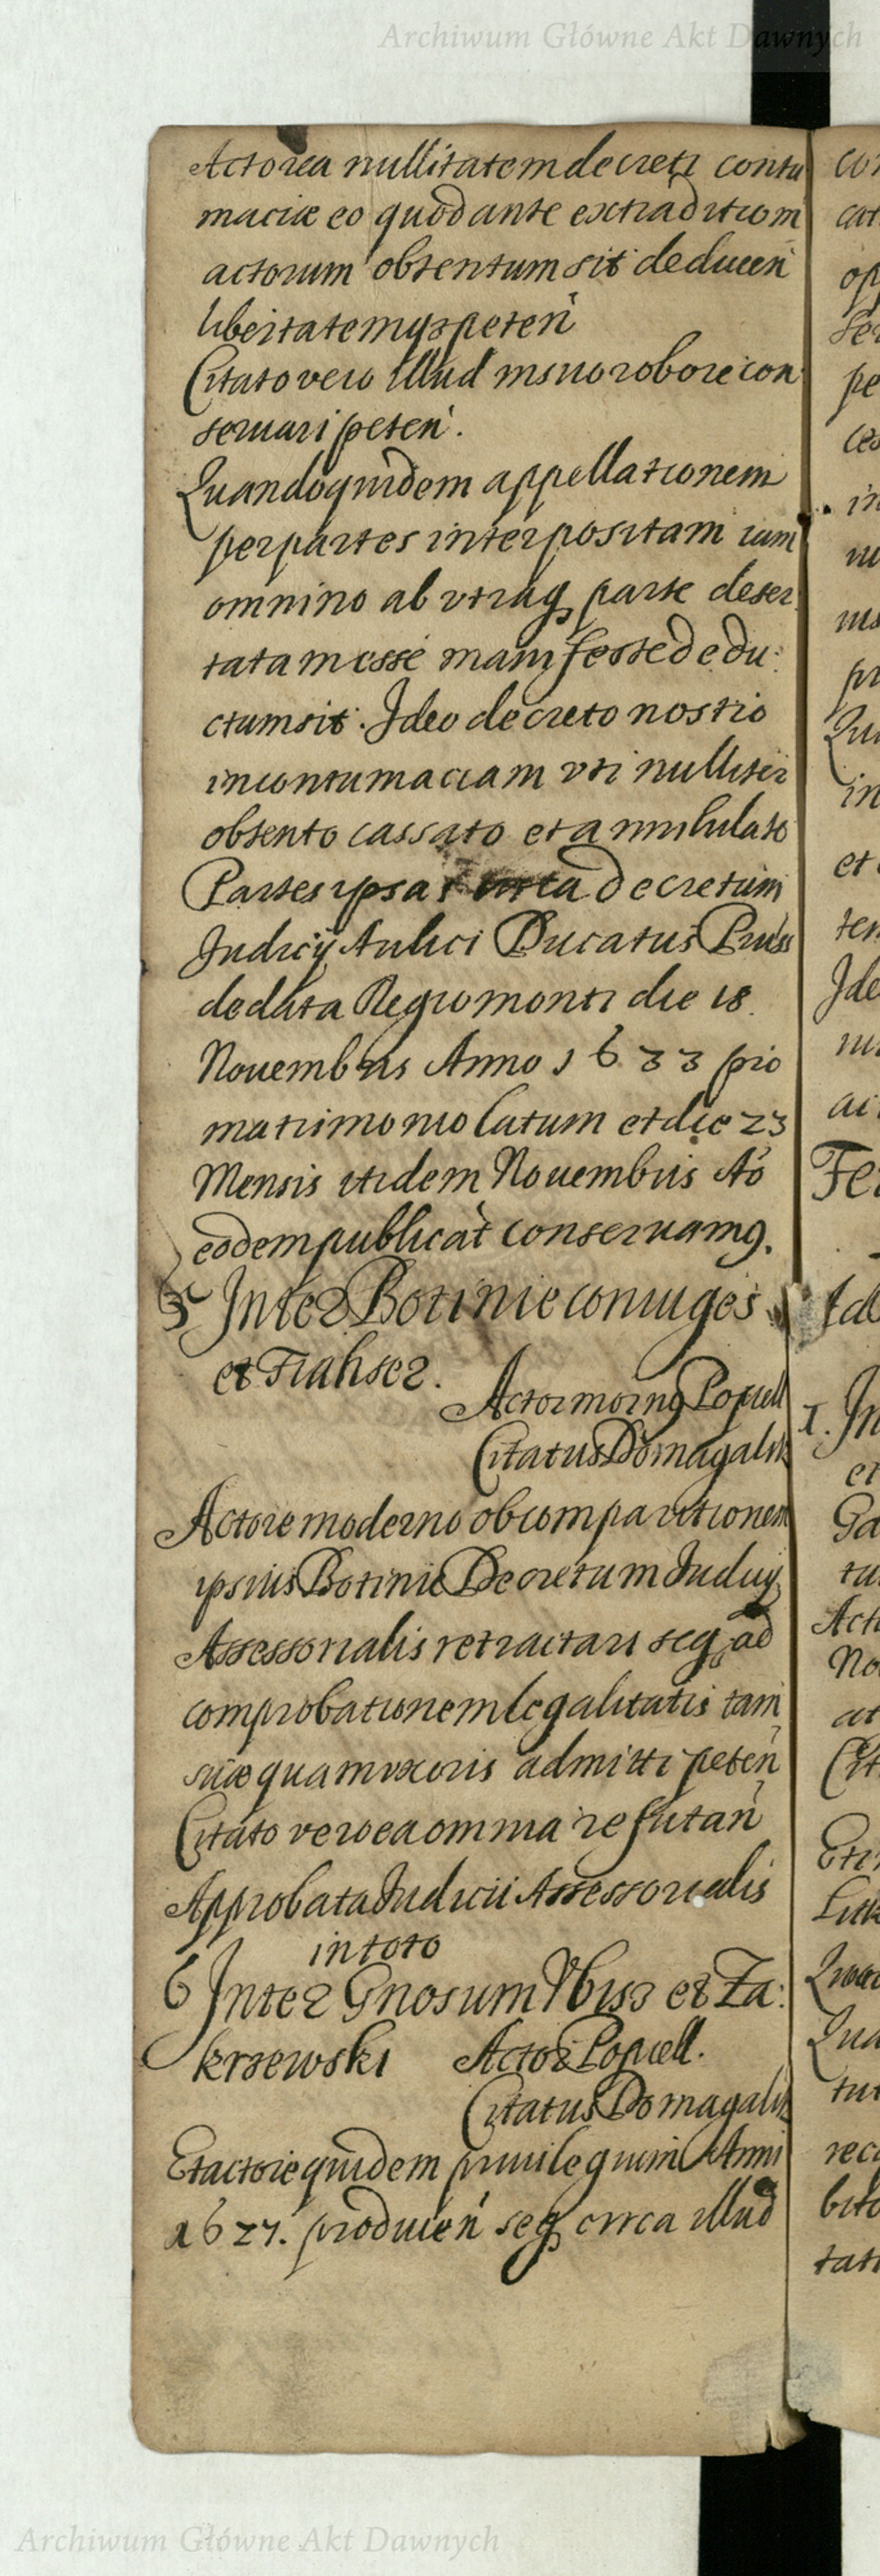 Archiwum Główne Akt Dawnych
Actorea nullitatem decreti contu
maciæ eo quod ante extraditiom
actorum obtentum sit deducen
libertatemqꝫ peten
Citato vero illud in suo robore con
seruari peten.
Quandoquidem appellationem
per partes interpositam iam
omnino ab vtraqꝫ parte deser
tatam esse manifeste dedu:
ctum sit. Ideo decreto nostro
in contumaciam vti nulliter
obtento cassato et annihilato
Partes ipsas decretum
Judicij Aulici Ducatus Pruss
de data Regiomonti die 18.
Nouembris Anno 1633 pro
matrimonio latum et die 23
Mensis itidem Nouembris Ao
eodem publicat conseruamꝰ.
5 Inter Botinie coniuges
et Frahser.
Actor mornꝰ Popiell
Citatus Domagalsk
Actore moderno ob comparitionem
ipsius Botinie Decretum Judicij
Assessorialis retractari seqꝫ ad
comprobationem legalitatis tam
suæ quam vxoris admitti peten
Citato vero ea omnia refutan
Approbata Judicii Assessorialis
in toto
6 Inter Gnosum Vbisz et Za:
krzewski Actor Popiell.
Citatus Domagalsk
Et actore quidem priuilegium Anni
1627. producen seqꝫ circa illud
con
cat
op
ser
pe
ces
in
pr
Qu
in
et
tem
Ide
Fer
1. In
et
Ga
tu
Act
No
at
Cit
Qua
tur
rec
bito
tati
Archiwum Główne Akt Dawnych